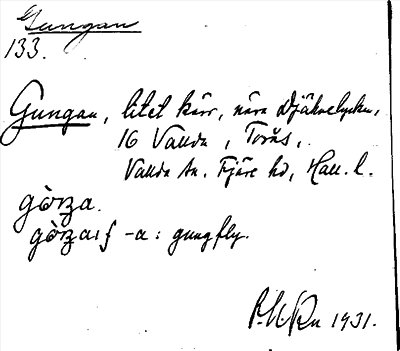 Gungan
133.
Gungan, litet kärr, nära Djäknelyckn,
16 Vallda, Torås,
Vallda sn. Fjäre hd, Hall. l.
gòrza.
gòrza: f -a: gungfly.
1931.